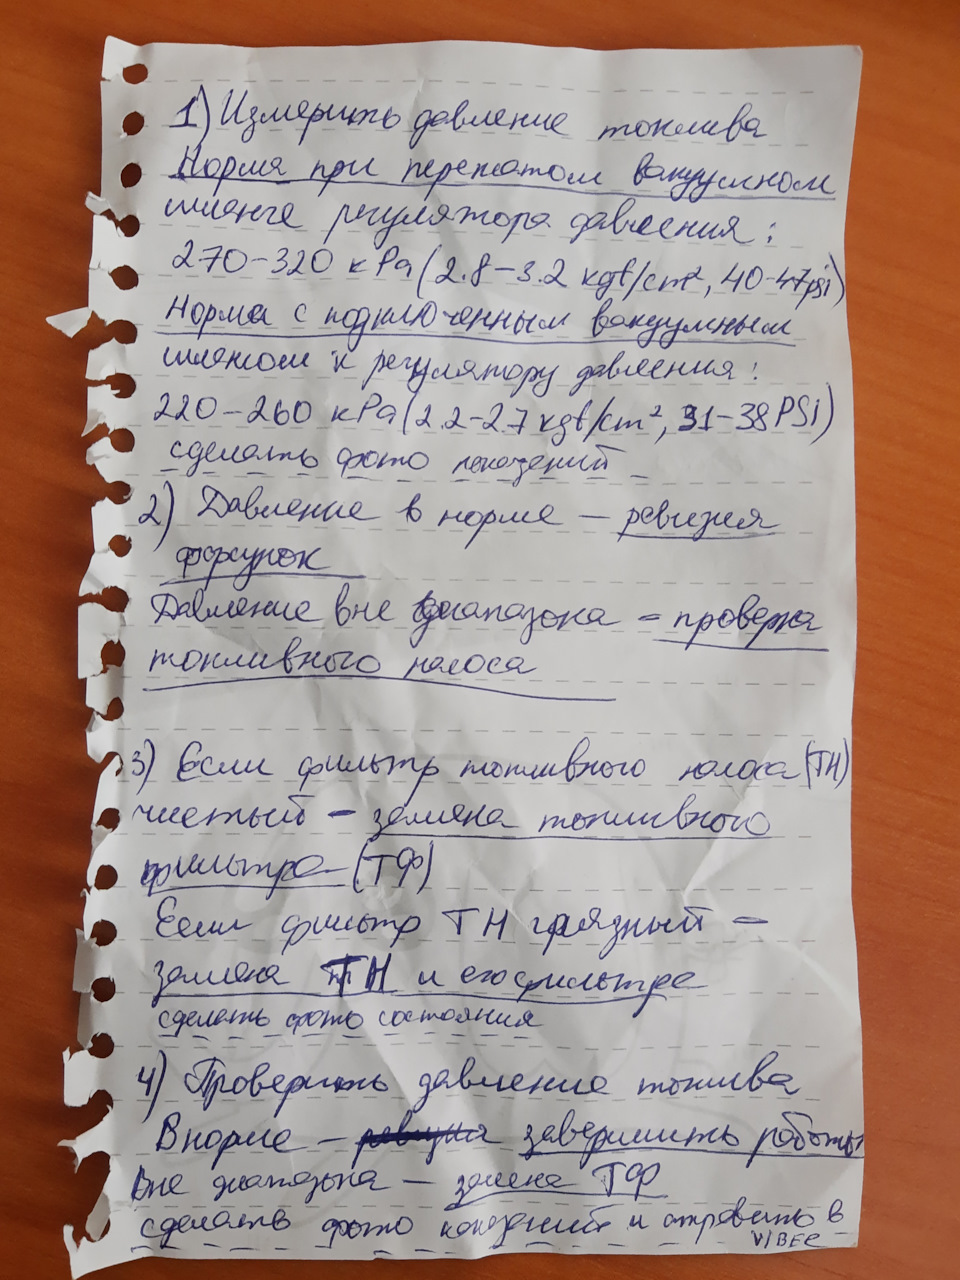 1) Измерить давление топлива
Норма при пережатом вакуумном
шланге регулятора давления:
270-320 kPa (2.8-3.2 kgf/cm², 40-47psi)
Норма с подключенным вакуумным
шлангом к регулятору давления:
220-260 kPa (2.2-2.7 kgf/cm², 31-38 PSi)
сделать фото показаний
2) Давление в норме - ревизия
форсунок
Давление вне диапазона - проверка
топливного насоса
3) Если фильтр топливного насоса (ТН)
чистый - замена топливного
фильтра (ТФ)
Если фильтр ТН грязный -
замена ТН и его фильтра
сделать фото состояния
4) Проверить давление топлива
В норме - ревизия завершить работы
Вне диапазона - замена ТФ
сделать фото показаний и отправить в
VIBER